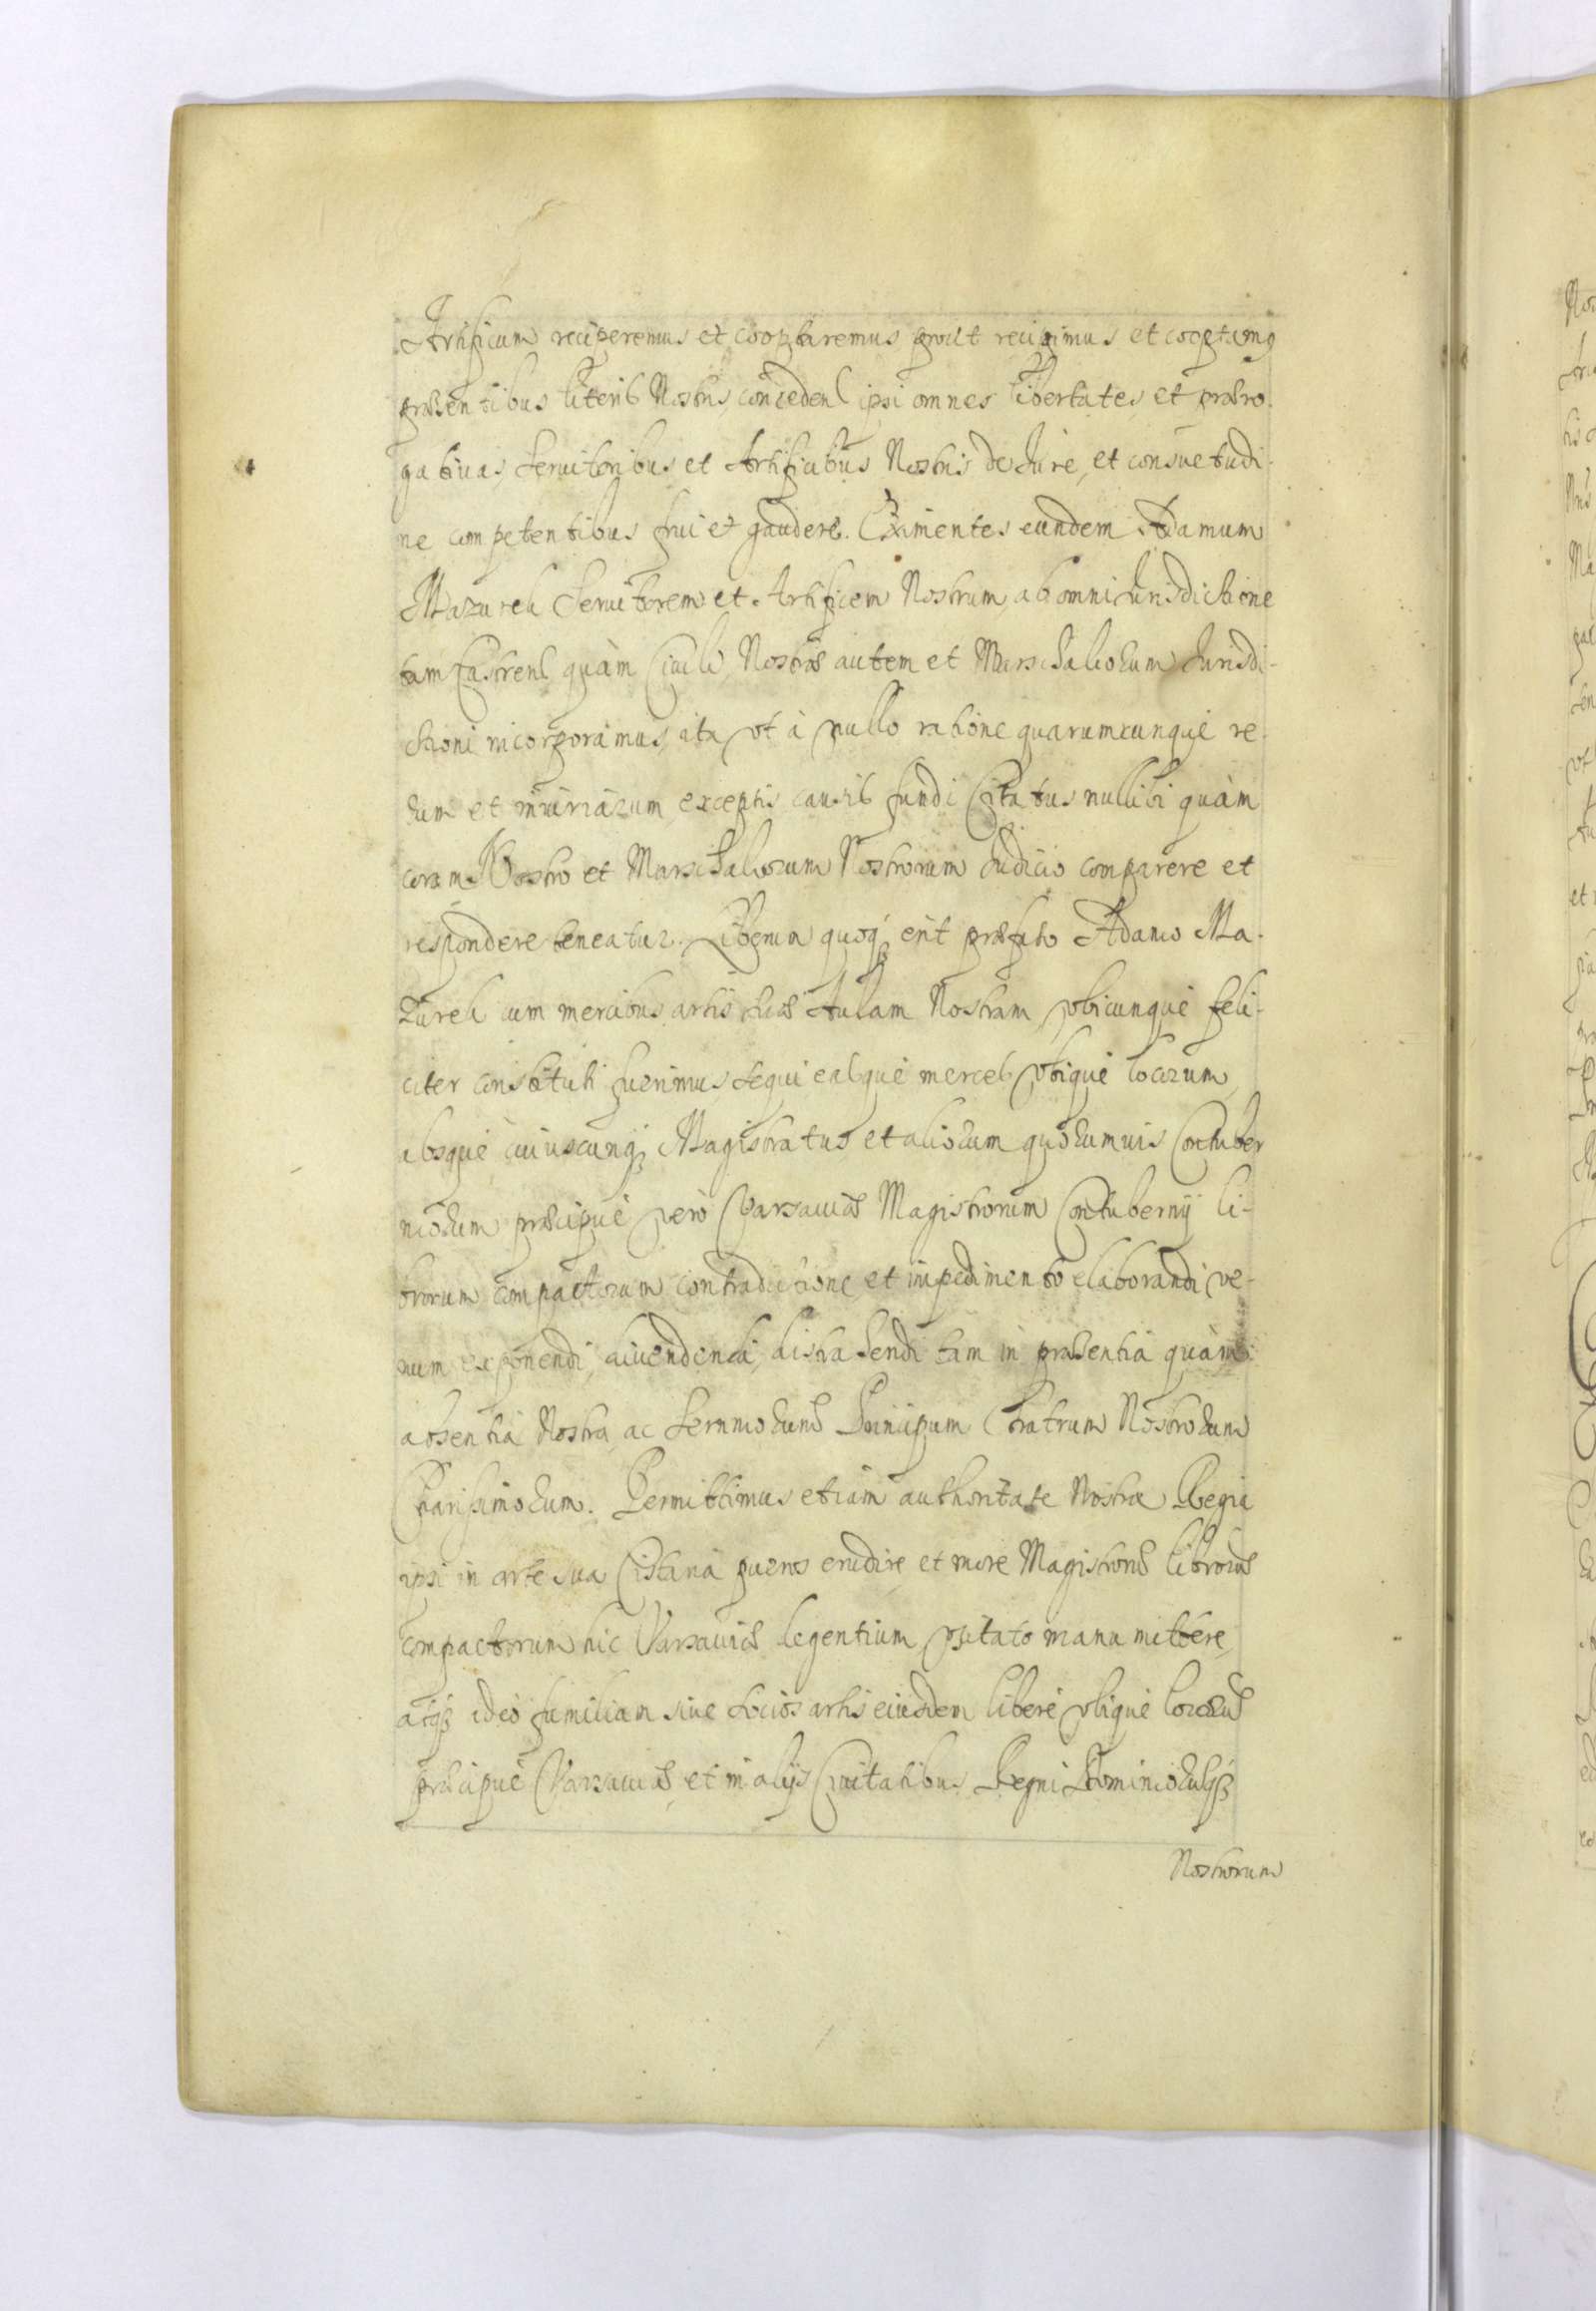 Artificum reciperemus et cooptaremus prout recipimus et cooptamꝰ
præsentibus literis Nostris, conceden ipsi omnes libertates et præro-
gatiuas, Seruitoribus et Artificibus Nostris de Jure, et consuetudi-
ne competentibus frui et gaudere. Eximentes eundem Adamum
Mazurek Seruitorem et Artificem Nostrum, ab omni Jurisdictione
tam Castrens quàm Ciuili, Nostræ autem et Marschalcorum Jurisdi-
ctioni incorporamus, ita vt à nullo ratione quarumcunque re-
rum et iniuriarum, exceptis causis fundi Citatus nullibi quàm
coram Nostro et Marschalcorum Nostrorum Judicio comparere et
respondere teneatur. Liberum quoqȝ erit præfato Adamo Ma-
zurek cum mercibus artis suæ Aulam Nostram vbicunque feli-
citer constituti fuerimus, sequi easque merces vbique locorum,
absque cuiuscunqȝ Magistratus et aliorum quorumuis Contuber
niorum præcipuè verò Varsauiæ Magistrorum Contubernij li-
brorum compactorum contradictione et impedimento elaborandi, ve-
num exponendi, diuendendi, distrahendi tam in præsentia quàm
absentia Nostra, ac Sernmorum Principum Fratrum Nostrorum
Charissimorum. Permittimus etiam authoritate Nostra Regia
ipsi in arte sua Cistaria pueros erudire, et more Magistrorũ librorũ
compactorum hic Varsauiæ degentium vsitato manu mittere,
atqȝ ideo familiam siue socios artis eiusdem liberè vbique locorũ
præcipuè Varsauiæ, et in alijs Ciuitatibus Regni Dominiorumqȝ
Nostrorum